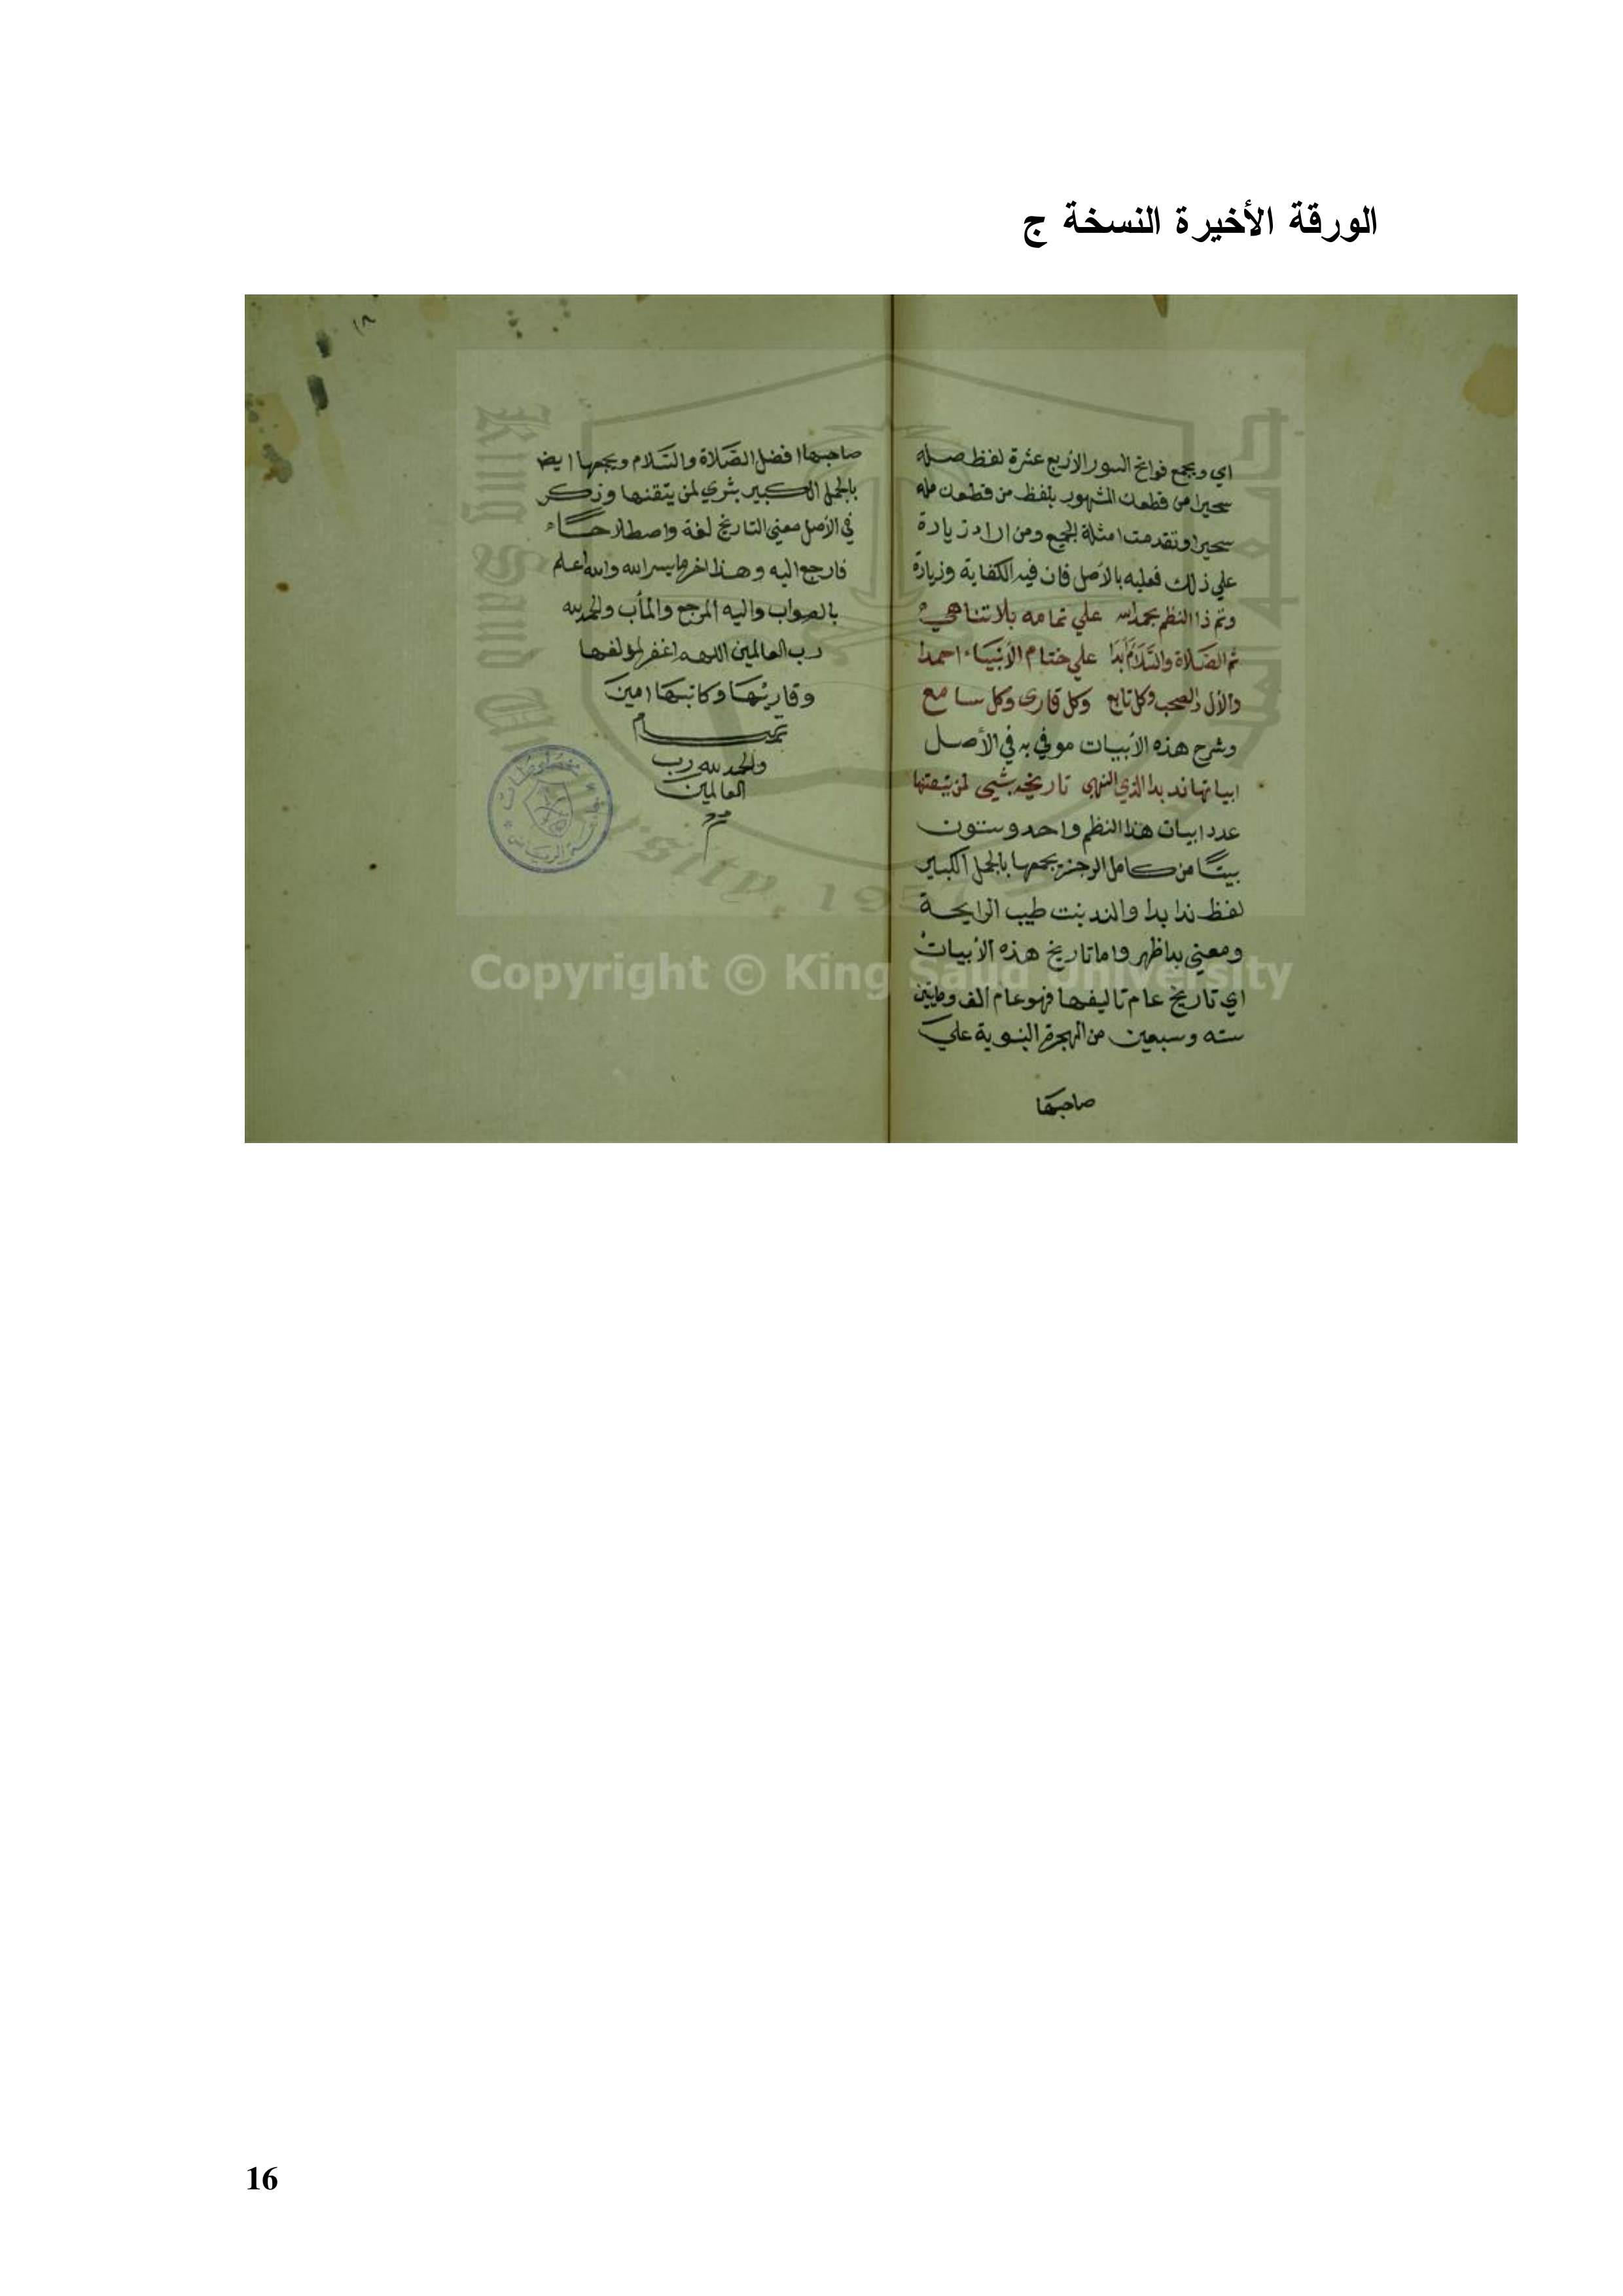 الورقة الأخيرة النسخة ج
اي ويجمع فواتح السور الأربع عشرة لفظ صله
سحيرا من قطعك المشهور بلفظ من قطعك صله
سحيرا وتقدمت امثلة الجمع ومن اراد زيادة
علي ذلك فعليه بالأصل فان فيه الكفاية وزيادة
وتم ذا النظم بحمد الله علي تمامه بلا تناهي
ثم الصلاة والسلام أبدا علي ختام الأنبياء احمدا
والآل والصحب وكل تابع وكل قارى وكل سامع
وشرح هذه الأبيات موفي به في الأصل
ابياتها ند بدا لذي النهى تاريخه بشرى لمن يتقنها
عدد ابيات هذا النظم واحد وستون
بيتًا من كامل الرجز يجمعها بالجمل الكبير
لفظ ند بدا والند نبت طيب الرايحة
ومعني بدا ظهر واما تاريخ هذه الأبيات
اي تاريخ عام تاليفها فهو عام الف ومايتين
سته وسبعين من الهجرة النبوية علي
صاحبها
١٨
صاحبها افضل الصلاة والسلام ويجمعها ايض
بالجمل الكبير بشري لمن يتقنها وذكر
في الأصل معني التاريخ لغة واصطلاحًا
فارجع اليه وهذا اخر ما يسر الله والله اعلم
بالصواب واليه المرجع والمأب والحمد لله
رب العالمين اللهم اغفر لمؤلفها
وقارئها وكاتبها امين
تمـــام
والحمد لله رب
العالمين
م
Copyright © King Saud University
16